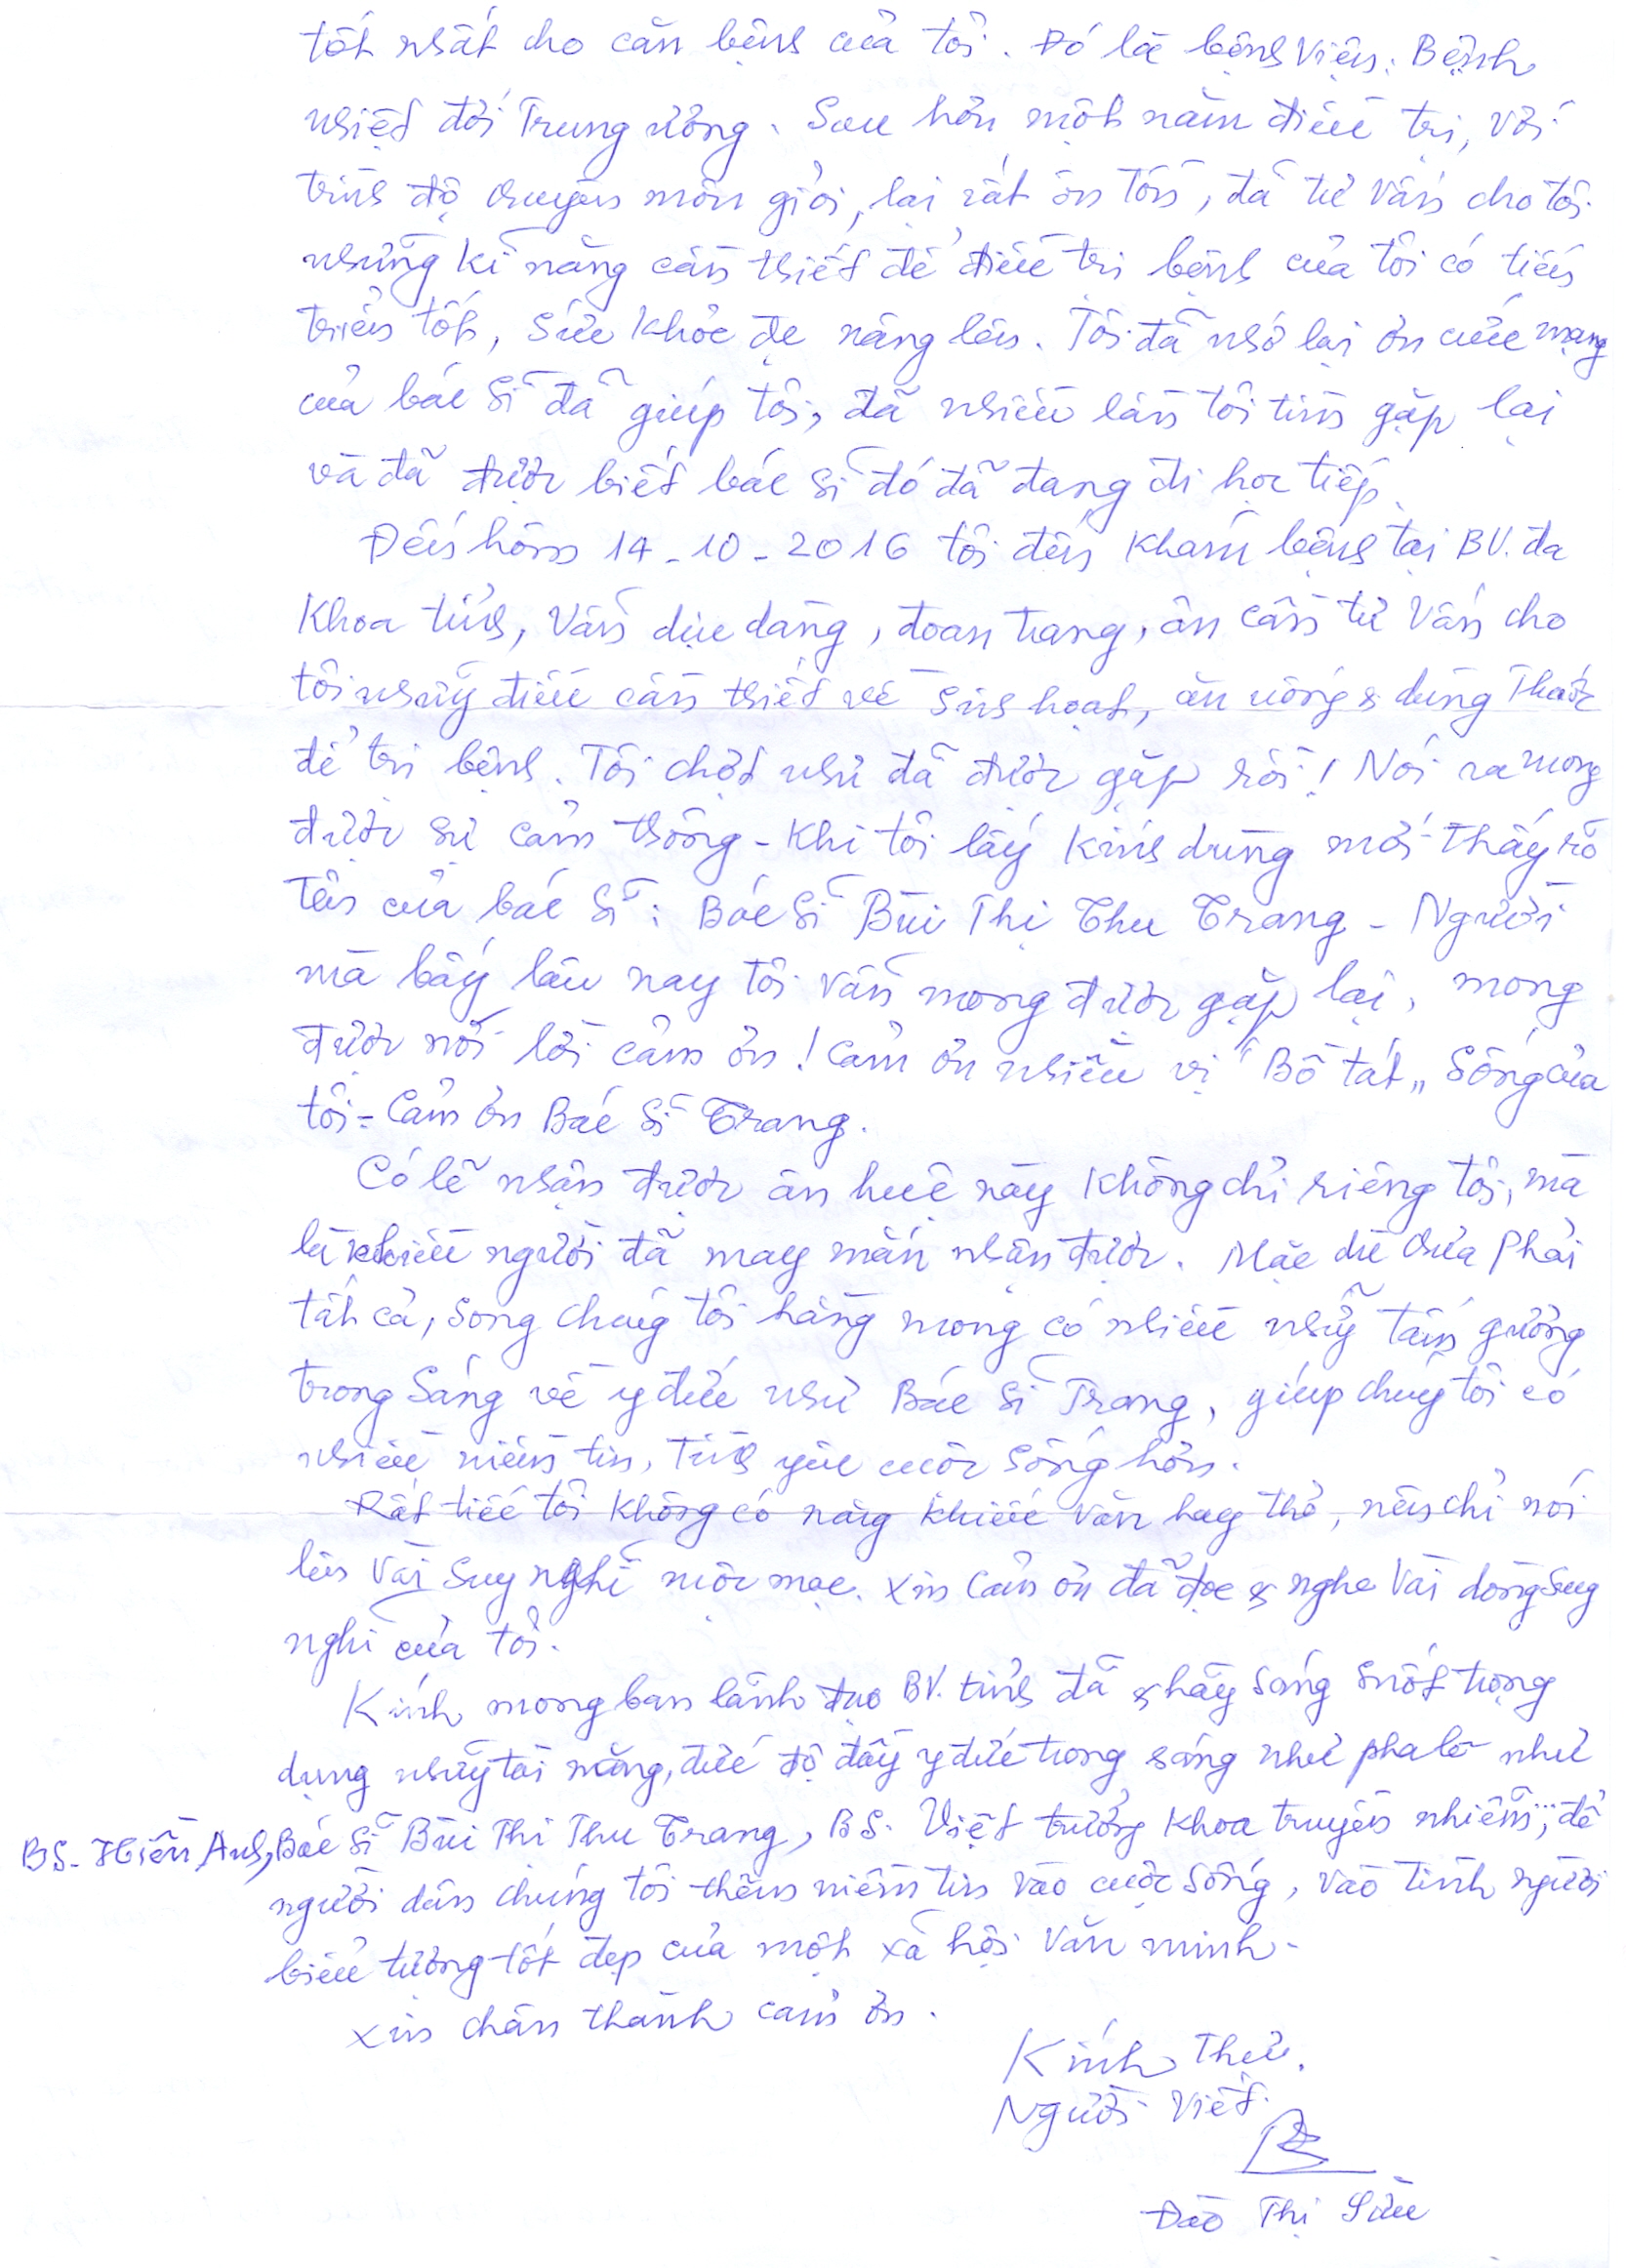 tốt nhất cho căn bệnh của tôi. Đó là bệnh viện: Bệnh
nhiệt đới Trung ương. Sau hơn một năm điều trị, với
trình độ chuyên môn giỏi, lại rất ôn tồn, đã tư vấn cho tôi
những kĩ năng cần thiết để điều trị bệnh của tôi có tiến
triển tốt, sức khỏe đc nâng lên. Tôi đã nhớ lại ơn cứu mạng
của bác sĩ đã giúp tôi, đã nhiều lần tôi tìm gặp lại
và đã được biết bác sĩ đó đã đang đi học tiếp.
Đến hôm 14-10-2016 tôi đến khám bệnh tại BV. đa
khoa tỉnh, vẫn dịu dàng, đoan trang, ân cần tư vấn cho
tôi những điều cần thiết về sinh hoạt, ăn uống & dùng thuốc
để trị bệnh. Tôi chợt như đã được gặp rồi! Nói ra mong
được sự cảm thông - Khi tôi lấy kính dùng mới thấy rõ
tên của bác sĩ: Bác sĩ Bùi Thị Thu Trang - Người
mà bấy lâu nay tôi vẫn mong được gặp lại, mong
được nói lời cảm ơn! Cảm ơn nhiều vị "Bồ tát" sống của
tôi - Cảm ơn Bác sĩ Trang.
Có lẽ nhận được ân huệ này không chỉ riêng tôi, mà
là nhiều người đã may mắn nhận được. Mặc dù chưa phải
tất cả, song chúng tôi hằng mong có nhiều những tấm gương
trong sáng về y đức như Bác sĩ Trang, giúp chúng tôi có
nhiều niềm tin, tình yêu cuộc sống hơn.
Rất tiếc tôi không có năng khiếu văn hay thơ, nên chỉ nói
lên vài suy nghĩ mộc mạc. Xin cảm ơn đã đọc & nghe vài dòng suy
nghĩ của tôi.
Kính mong ban lãnh đạo BV. tỉnh đã & hãy sáng suốt trọng
dụng những tài năng, đức độ đầy y đức trong sáng như pha lê như
BS. Hiền Anh, Bác sĩ Bùi Thị Thu Trang, BS. Việt trưởng khoa truyền nhiễm...; để
người dân chúng tôi thêm niềm tin vào cuộc sống, vào tình người
biểu tượng tốt đẹp của một xã hội văn minh.
Xin chân thành cảm ơn.
Kính thư.
Người viết.
Đào Thị